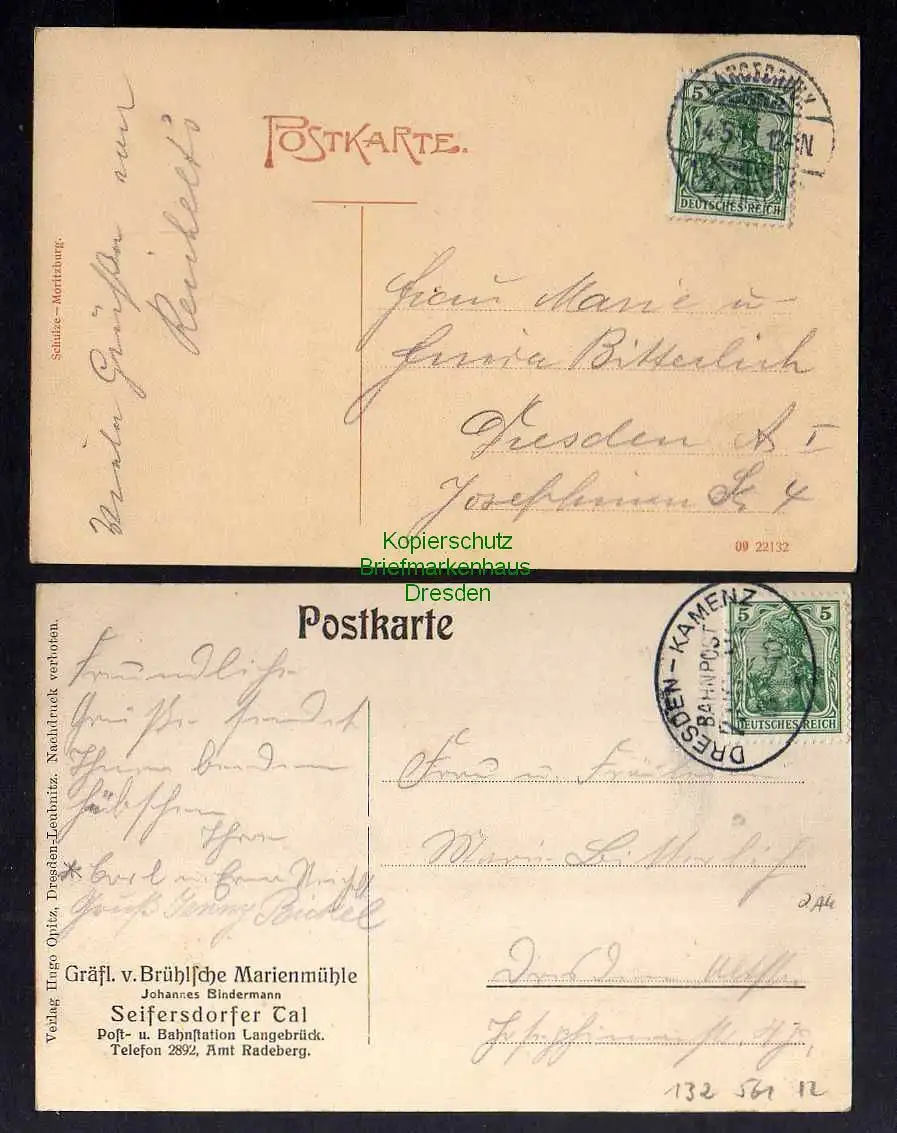 POSTKARTE.
LANGEBRÜCK
5
DEUTSCHES REICH
Schulze – Moritzburg.
Viele Grüßen von
Reichelt's
Frau Marie u
Bitterlich
Dresden A I
Josephinen Str 4
09 22132
Kopierschutz
Briefmarkenhaus
Dresden
Postkarte
DRESDEN – KAMENZ
BAHNPOST
5 5
DEUTSCHES REICH
Verlag Hugo Opitz, Dresden-Leubnitz. Nachdruck verboten.
Freundliche
Grüße sendet
Ihnen beiden
Ihre
Gruß Jenny
Frau u. Fräulein
Marie Bitterlich
Dresden Altst.
Gräfl. v. Brühlſche Marienmühle
Johannes Bindermann
Seifersdorfer Tal
Poſt- u. Bahnſtation Langebrück.
Telefon 2892, Amt Radeberg.
132 561 12